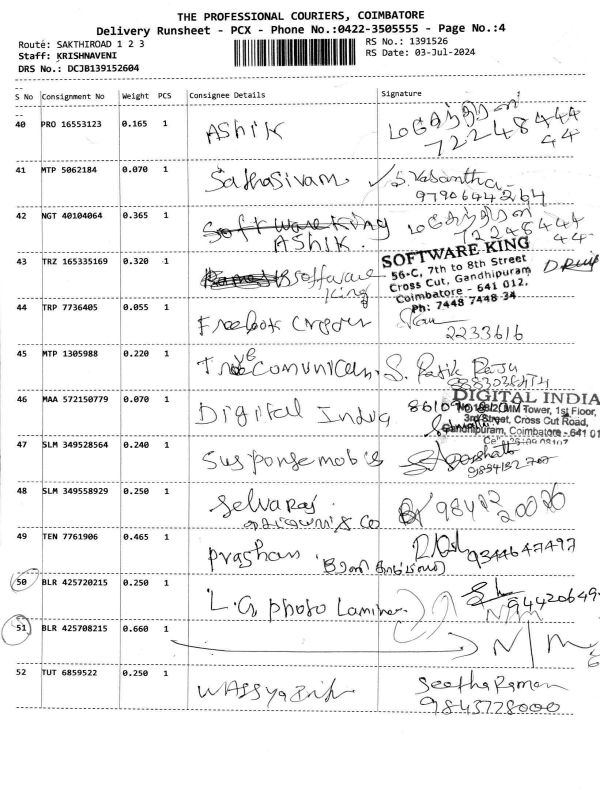 THE PROFESSIONAL COURIERS, COIMBATORE
Delivery Runsheet - PCX - Phone No.:0422-3505555 - Page No.:4
Route: SAKTHIROAD 1 2 3
Staff: KRISHNAVENI
DRS No.: DCJB139152604
RS No.: 1391526
RS Date: 03-Jul-2024
S No Consignment No Weight PCS Consignee Details Signature
40 PRO 16553123 0.165 1 Ashik
72248444
44
41 MTP 5062184 0.070 1 Sathasivam S. Vasantha
9790644264
42 NGT 40104064 0.365 1 Software King
ASHIK.
72248444
44
43 TRZ 165335169 0.320 1 Software
King
SOFTWARE KING
56-C, 7th to 8th Street
Cross Cut, Gandhipuram
Coimbatore - 641 012.
Ph: 7448 7448 34
44 TRP 7736405 0.055 1 Freelook
2233616
45 MTP 1305988 0.220 1
46 MAA 572150779 0.070 1 Digital India
DIGITAL INDIA
MM Tower, 1st Floor,
3rd Street, Cross Cut Road,
Gandhipuram, Coimbatore - 641 01
47 SLM 349528564 0.240 1
48 SLM 349558929 0.250 1 Selvaraj
& Co
49 TEN 7761906 0.465 1 Prashan
9344647497
50 BLR 425720215 0.250 1 L.G photo
94420649
N/m
51 BLR 425708215 0.660 1 N/m
52 TUT 6859522 0.250 1 Seetha Raman
9843728000